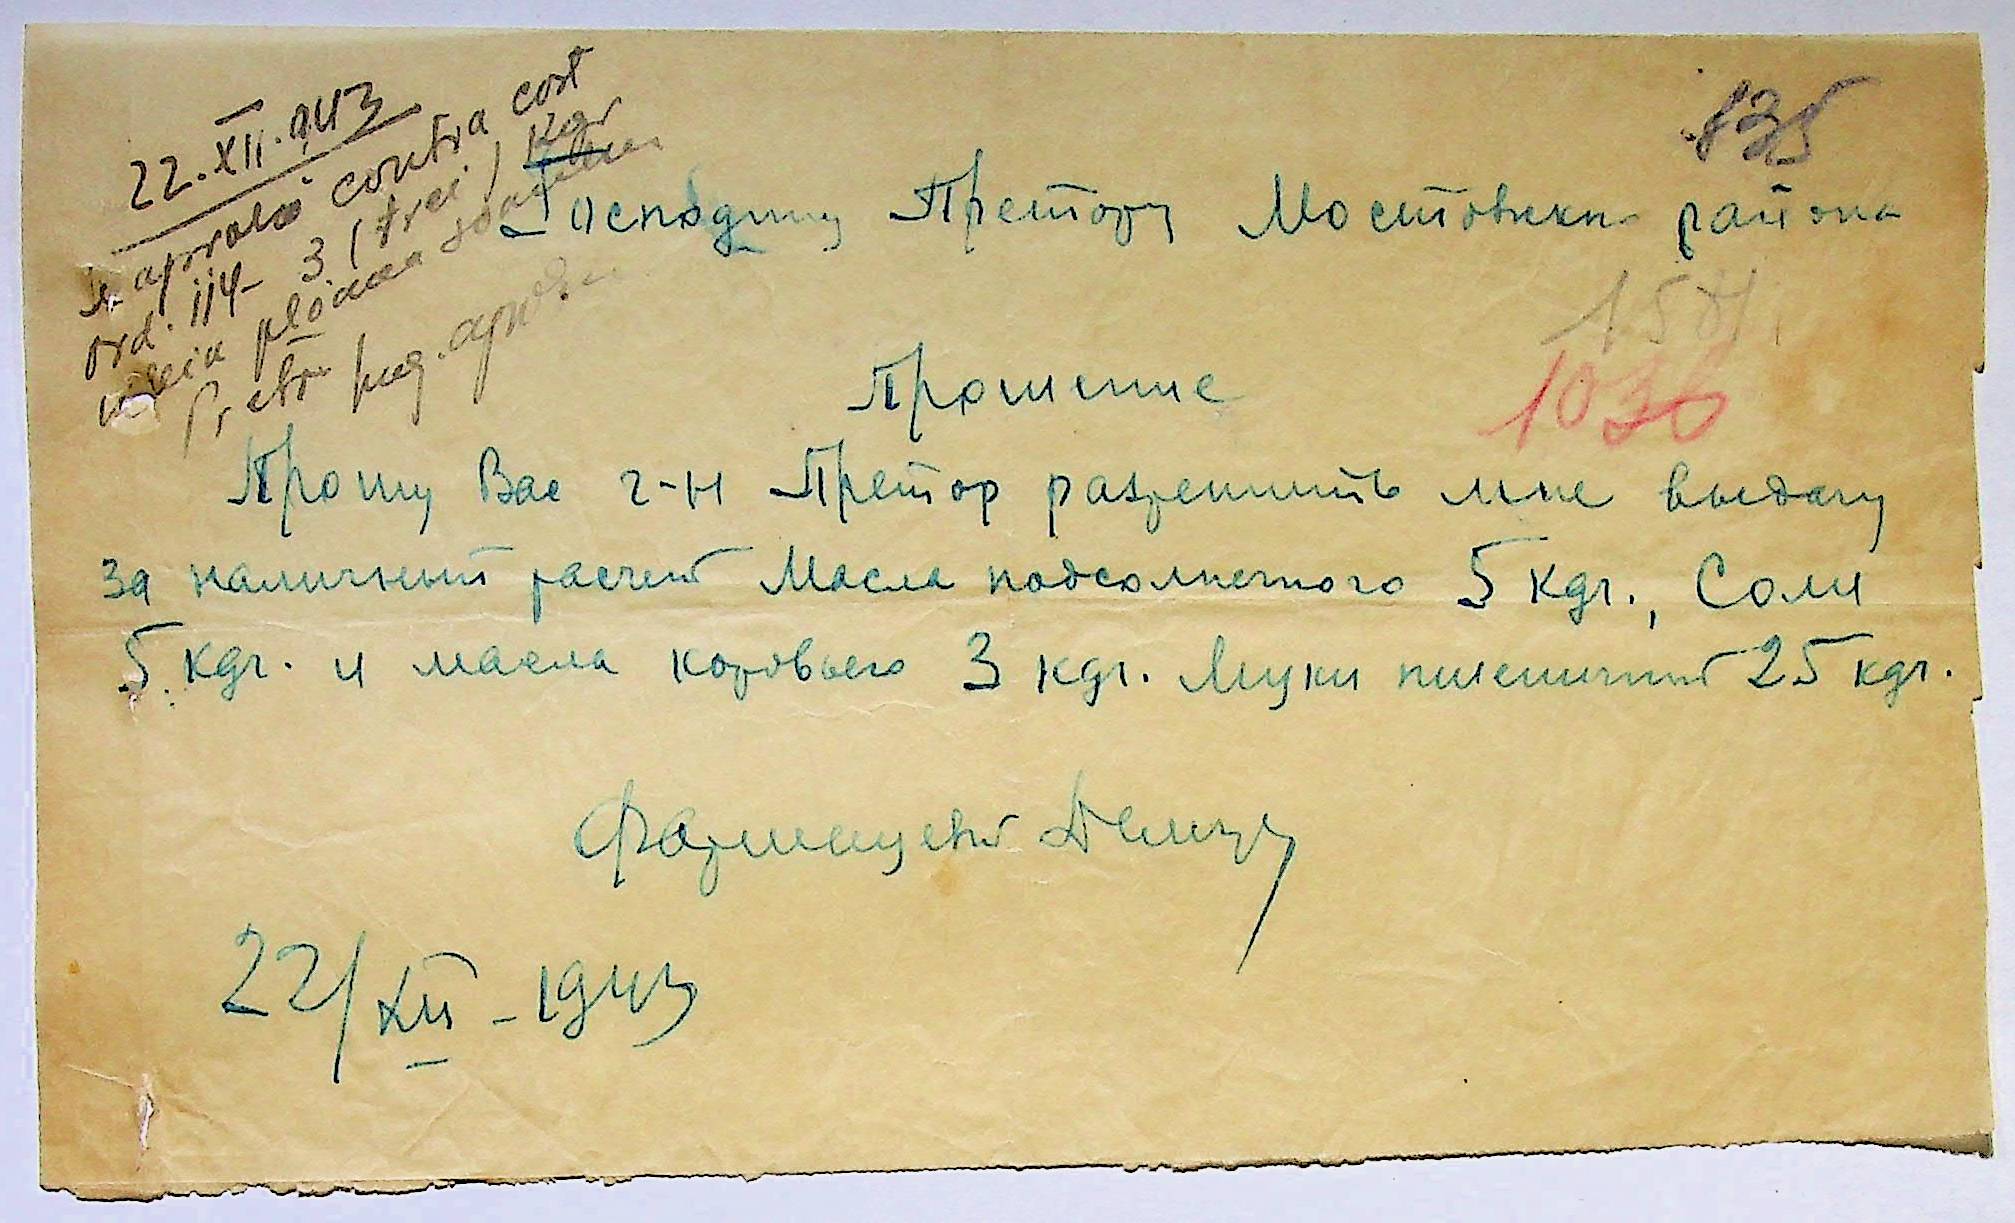 22.XII.943
Se aprobă contra cost
ord. 114- 3 (trei) kgr
ulei
Pretr
835
Господину Претору Мостовск района
1036
Прошение
Прошу Вас г-н Претор разрешить мне выдачу
за наличный расчет Масла подсолнечного 5 кгг., Соли
5 кгг. и масла коровьего 3 кгг. Муки пшеничной 25 кгг.
Фармацевт
22/XII - 1943